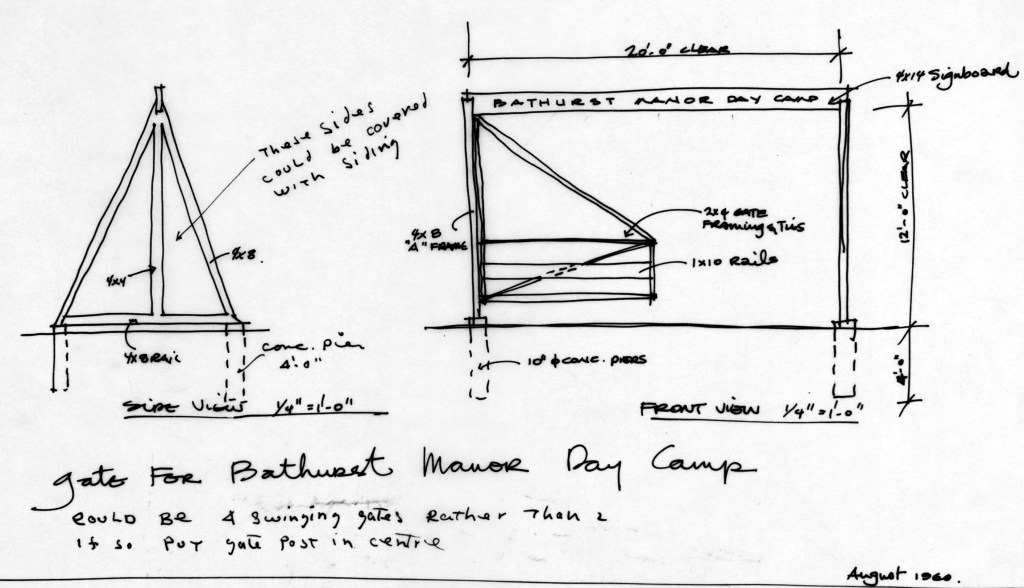 20'-0" CLEAR
4x14 Signboard
BATHURST MANOR DAY CAMP
These sides
could be covered
with siding
12'-0" CLEAR
2x4 GATE
FRAMING & Ties
4x8
"A" FRAME
4x8.
1x10 Rails
4x4
4x8 RAIL
conc. pier
4'-0"
10" φ CONC. PIERS
4'-0"
SIDE VIEW 1/4" = 1'-0"
FRONT VIEW 1/4" = 1'-0"
gate FOR Bathurst Manor Day Camp
COULD BE 4 swinging gates Rather Than 2
If so PUT gate Post in centre
August 1960.